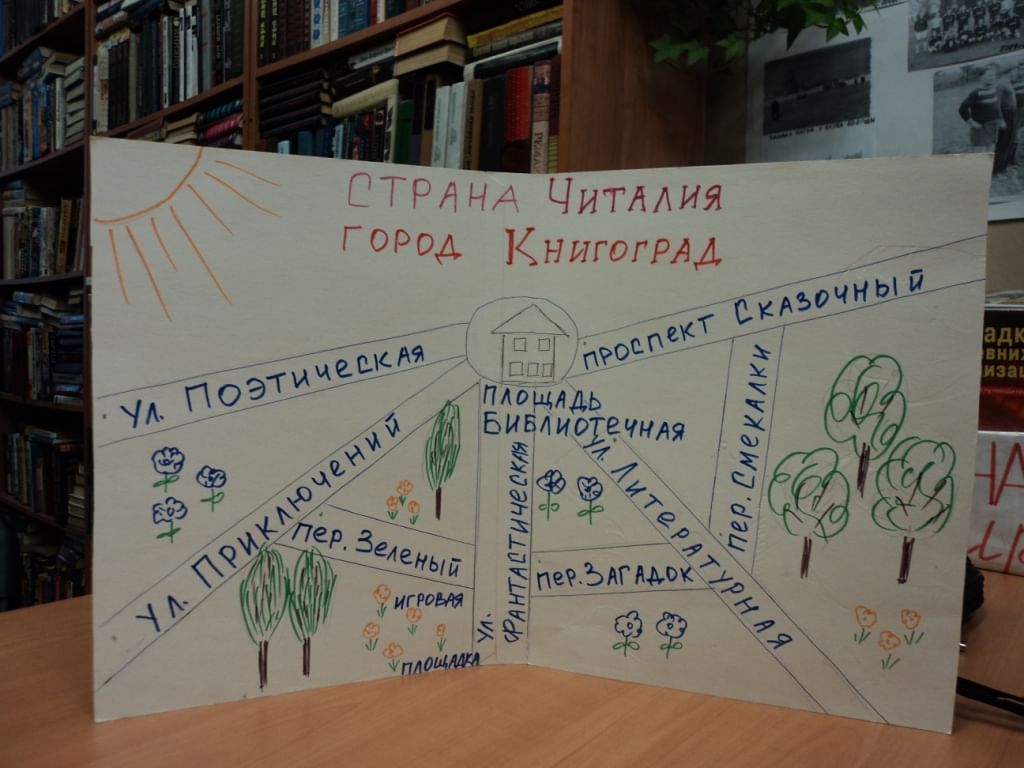 СТРАНА ЧИТАЛИЯ
ГОРОД КНИГОГРАД
УЛ. ПОЭТИЧЕСКАЯ
ПРОСПЕКТ СКАЗОЧНЫЙ
ПЛОЩАДЬ
БИБЛИОТЕЧНАЯ
УЛ. ПРИКЛЮЧЕНИЙ
ПЕР. ЗЕЛЕНЫЙ
ИГРОВАЯ
ПЛОЩАДКА
УЛ. ФАНТАСТИЧЕСКАЯ
УЛ. ЛИТЕРАТУРНАЯ
ПЕР. ЗАГАДОК
ПЕР. СМЕКАЛКИ